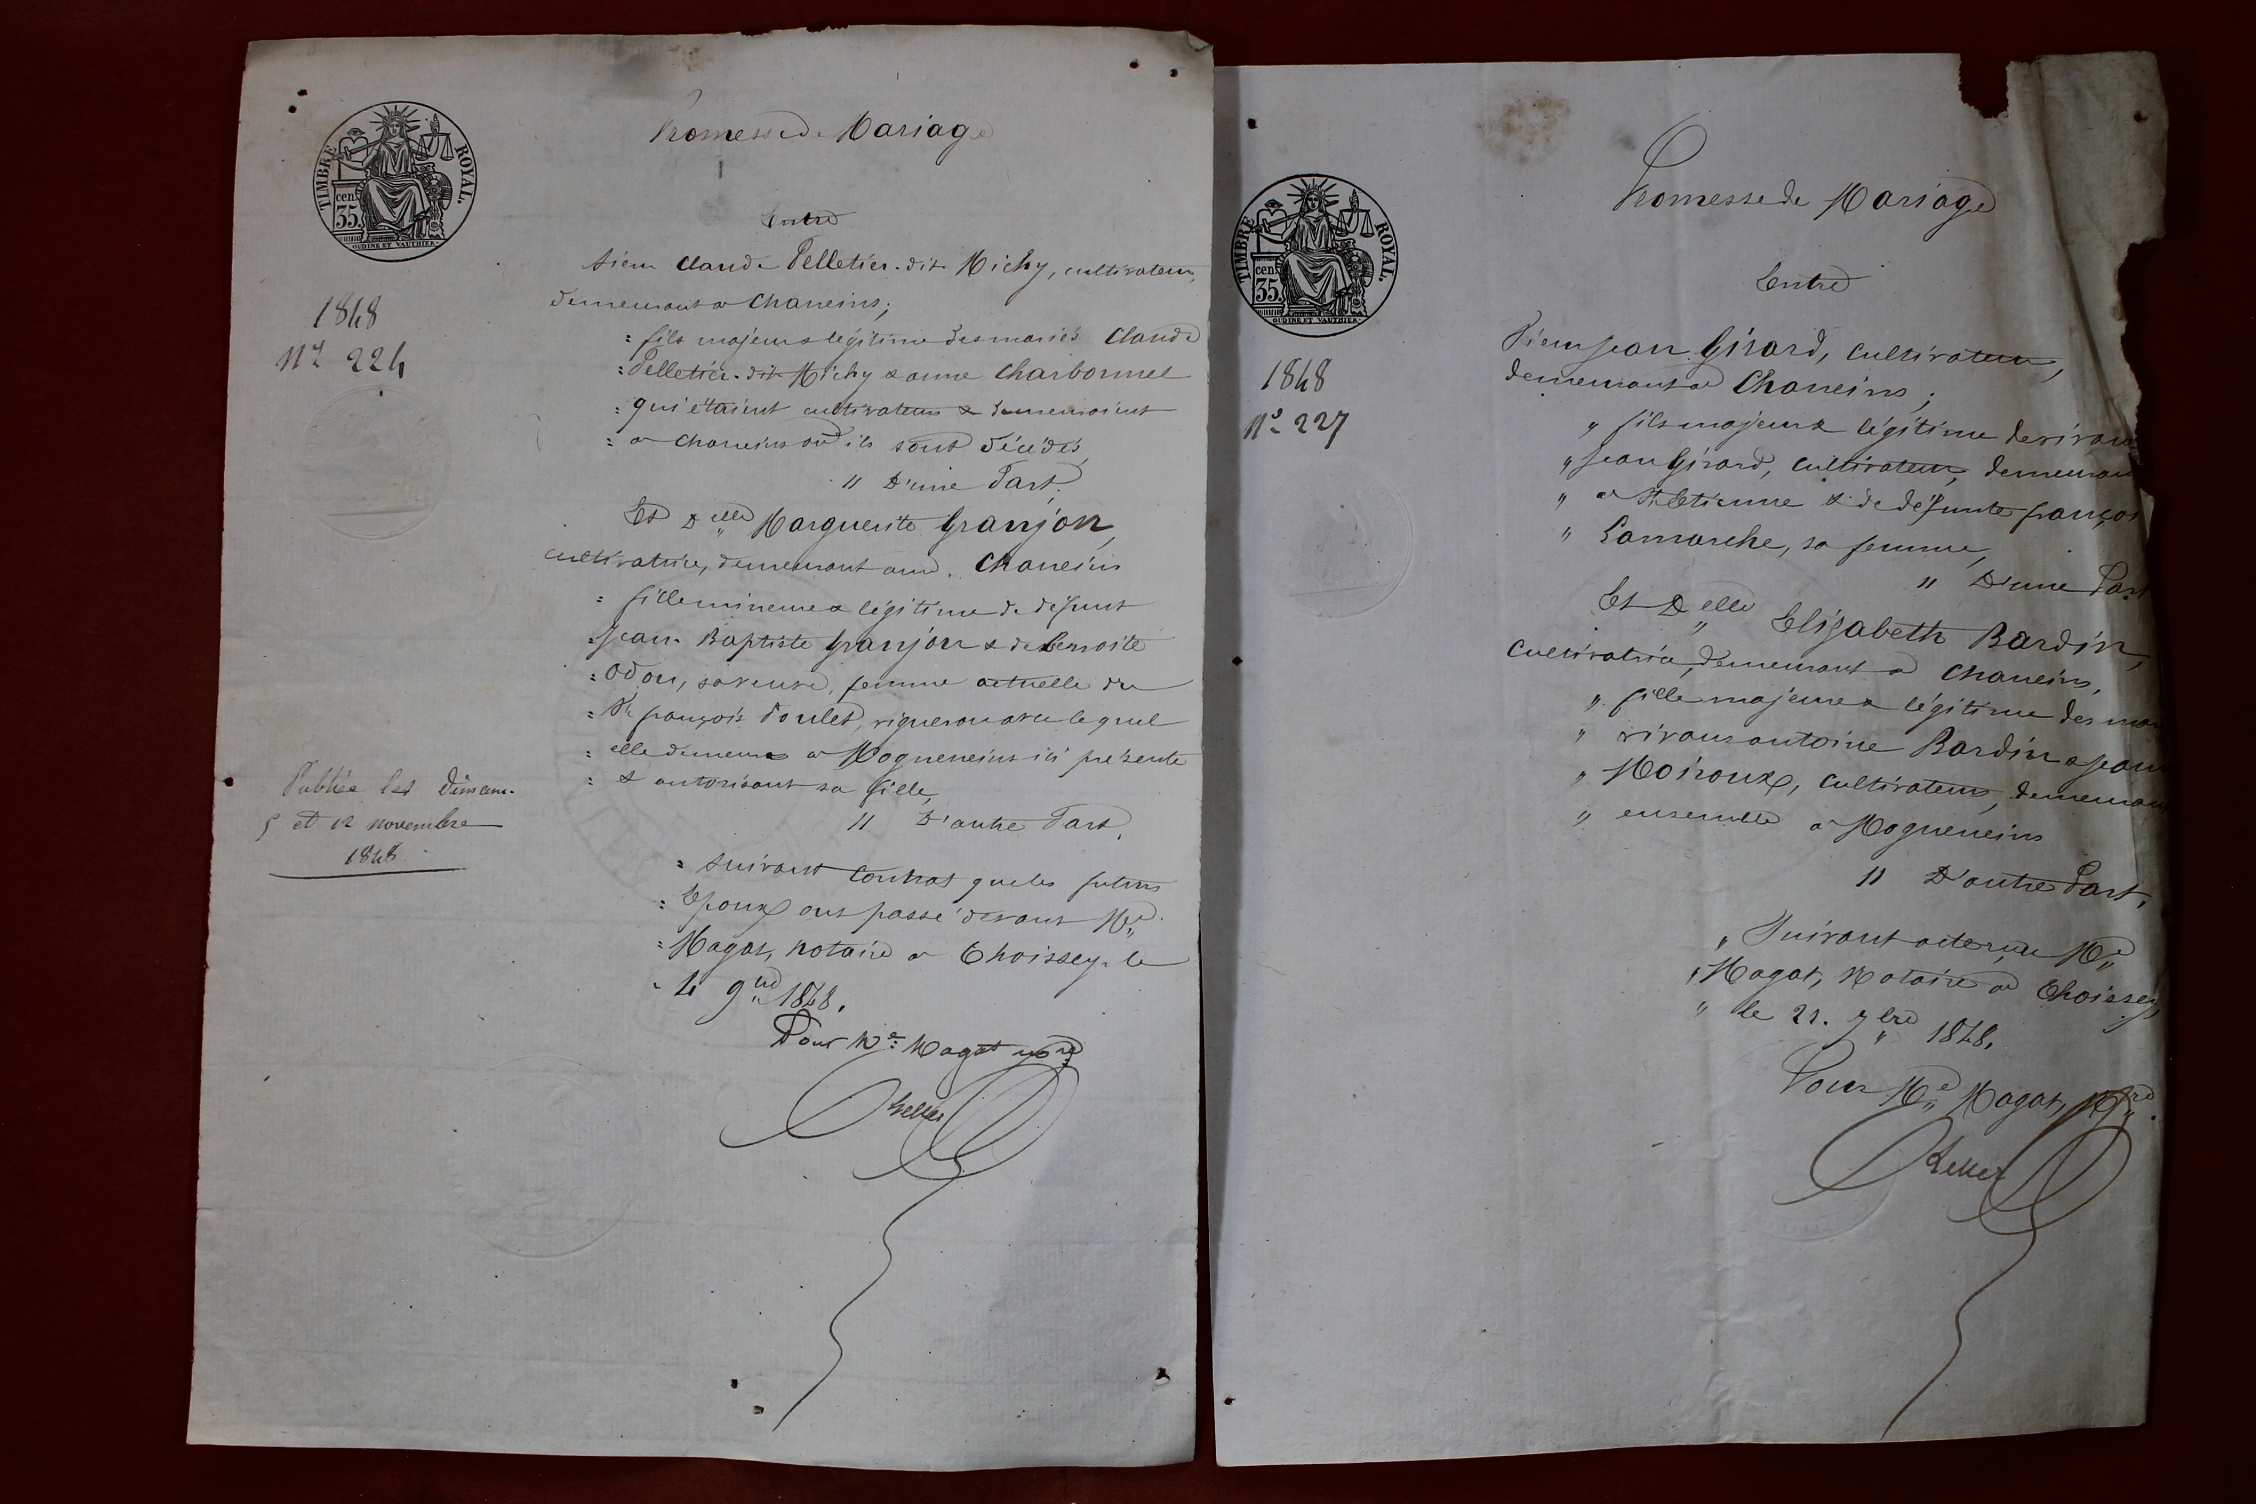 TIMBRE ROYAL.
cen.
35.
OUDINE ET VAUTHIER.
1848
N° 224
Publiée les dimean.
5 et 12 novembre
1848
Promesse de Mariage
Entre
Sieur Claude Pelletier dit Michy, cultivateur,
demeurant a Chaneins;
= fils majeur & légitime des mariés Claude
= Pelletier dit Michy & anne Charbonnet
= qui étaient cultivateurs & demeuraient
= a Chaneins où ils sont décédés,
" D'une Part;
Et Delle Marguerite Granjon,
cultivatrice, demeurant aud. Chaneins
= fille mineure & légitime de defunt
= Jean Baptiste Granjon & de Benoite
= Odou, sa veuve, femme actuelle du
= Sr françois Poulet, vigneron avec lequel
= elle demeure a Mogneneins ici présente
= & autorisant sa fille,
" D'autre Part,
= Suivant Contrat que les futurs
= Epoux ont passé devant Me
= Magat, notaire a Thoissey le
= 4 9bre 1848.
Pour Me Magat nore
Keller
TIMBRE ROYAL.
cen.
35.
OUDINE ET VAUTHIER.
1848
N° 227
Promesse de Mariage
Entre
Sieur Jean Girard, cultivateur,
demeurant a Chaneins;
" fils majeur & légitime de vivant
" Jean Girard, cultivateur, demeuran
" a St Etienne & de défunte françoi
" Lamarche, sa femme,
" D'une Part
Et Delle Elisabeth Bardin,
cultivatrice, demeurant a Chaneins,
" fille majeure & légitime des mar
" vivans antoine Bardin & Jean
" Moiroux, cultivateurs, demeuran
" ensemble a Mogneneins
" D'autre Part,
" Suivant acte reçu Me
" Magat, Notaire a Thoissey,
" le 21. 7bre 1848.
Pour Me Magat, Nre
Keller